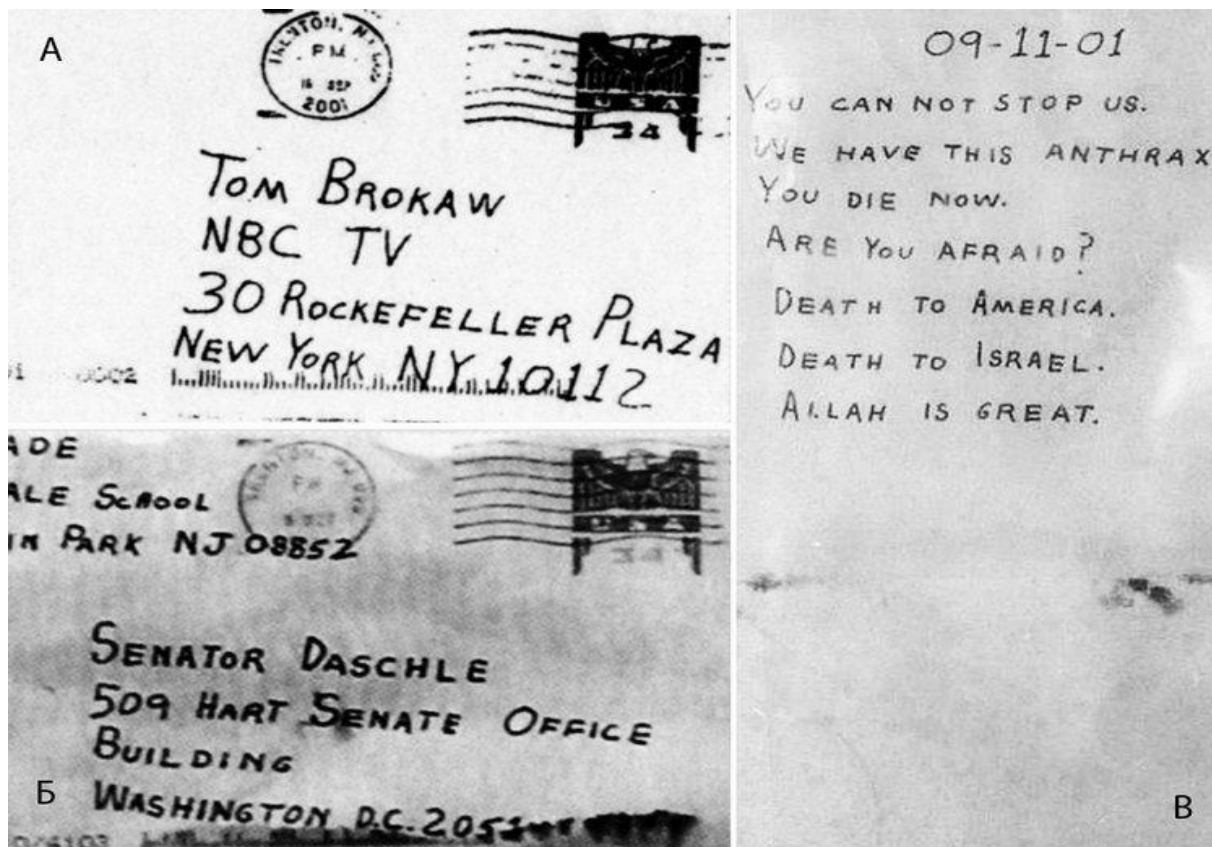 А
TRENTON, NJ
PM
18 SEP
2001
USA
34
TOM BROKAW
NBC TV
30 ROCKEFELLER PLAZA
NEW YORK NY 10112
0002
ADE
ALE SCHOOL
PARK NJ 08852
PM
34
SENATOR DASCHLE
509 HART SENATE OFFICE
BUILDING
WASHINGTON D.C. 205
Б
09-11-01
YOU CAN NOT STOP US.
WE HAVE THIS ANTHRAX
YOU DIE NOW.
ARE YOU AFRAID?
DEATH TO AMERICA.
DEATH TO ISRAEL.
ALLAH IS GREAT.
В